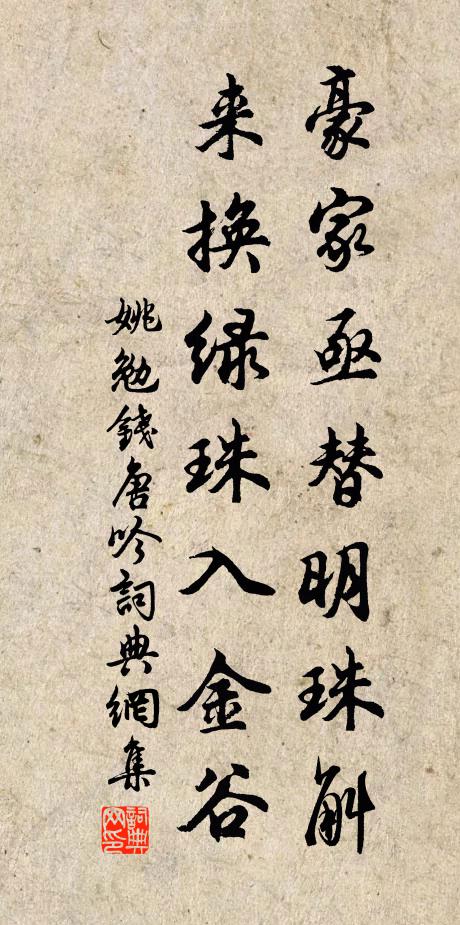 豪家亟替明珠斛
来换绿珠入金谷
姚勉錢唐吟詞典網集
詞典网印